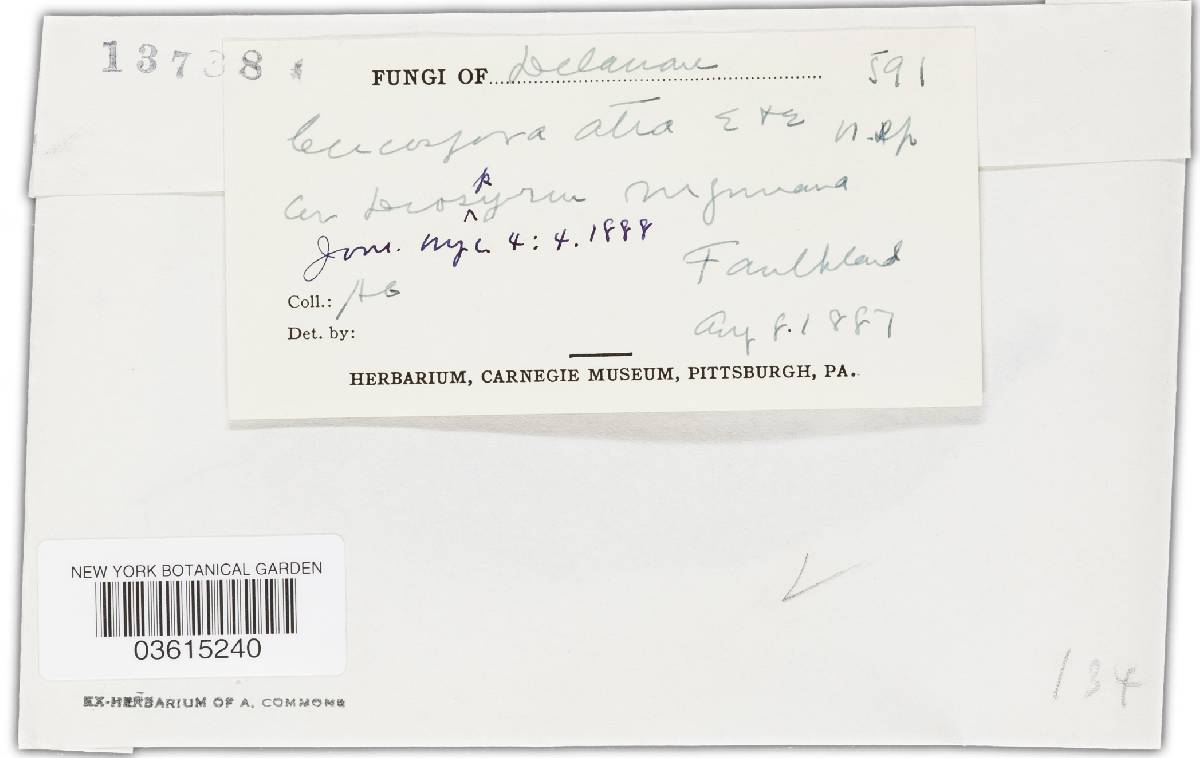 13738
FUNGI OF Delaware 591
Cercospora atra E & E n. sp
on Diospyrus virginiana
Jour. Myc. 4: 4. 1888
Faulkland
Coll.: AC
Aug 8. 1887
Det. by:
HERBARIUM, CARNEGIE MUSEUM, PITTSBURGH, PA.
NEW YORK BOTANICAL GARDEN
03615240
EX-HERBARIUM OF A. COMMONS
134